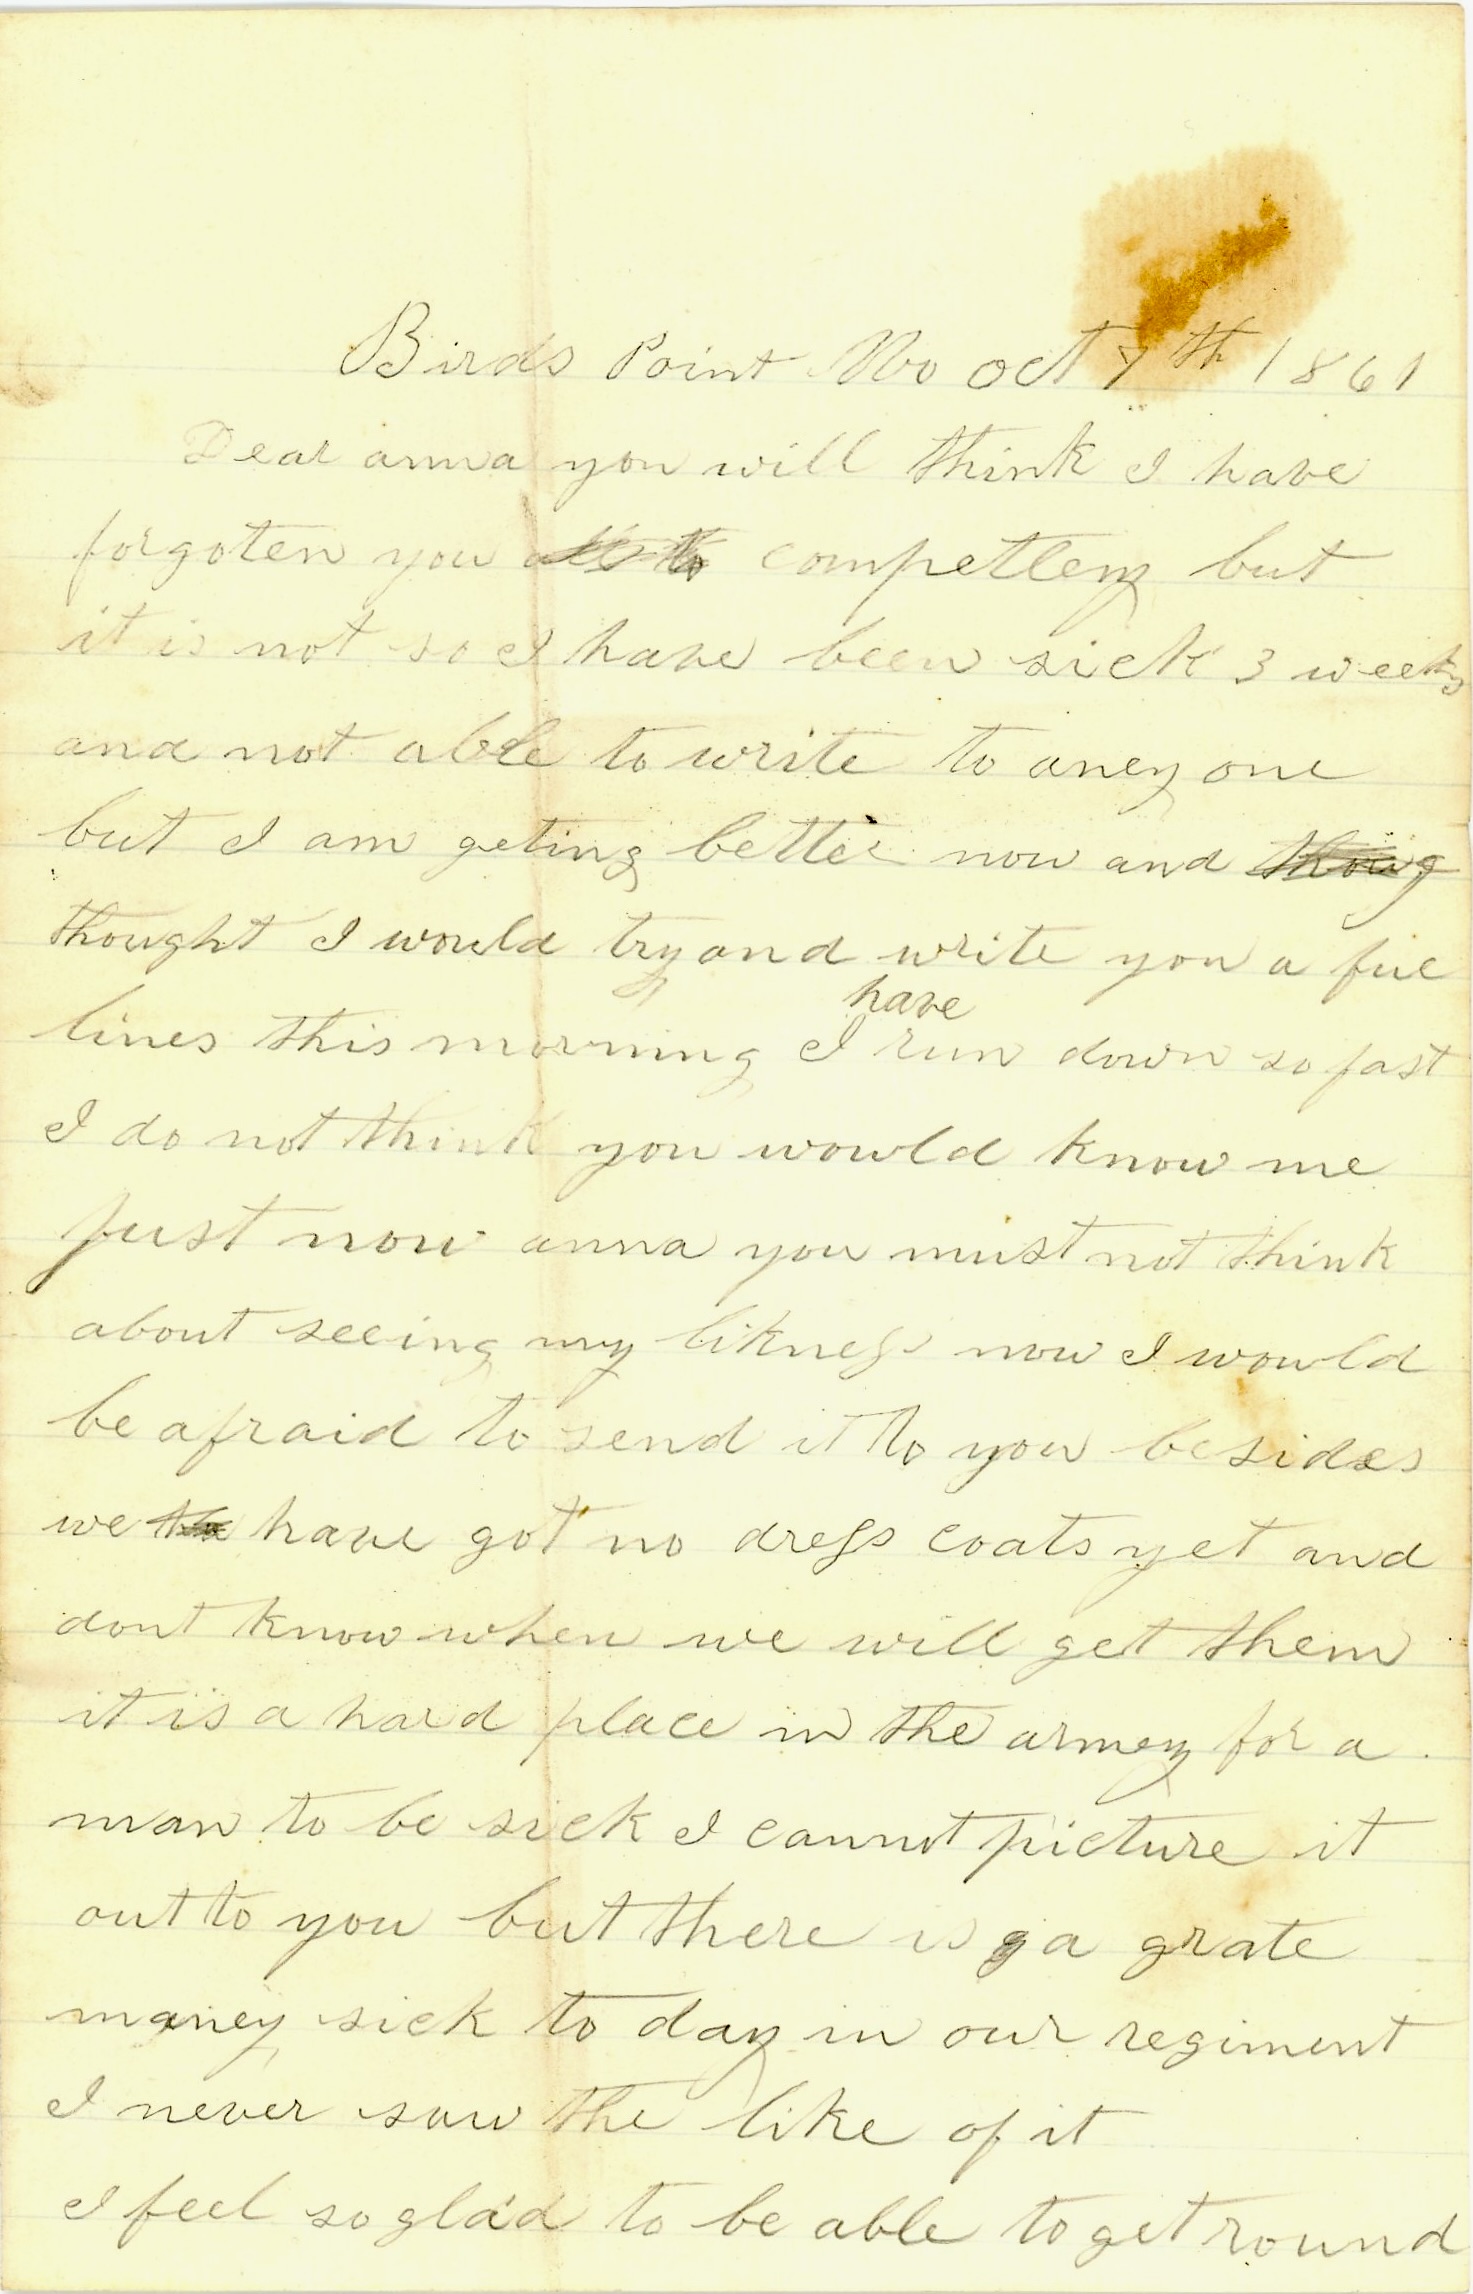 Birds Point Mo Oct 7th 1861
Dear anna you will think I have
forgoten you competley but
it is not so I have been sick 3 weeks
and not able to write to aney one
but I am geting better now and thoug
thought I would try and write you a fue
lines this morning I have run down so fast
I do not think you wowld know me
Just now anna you must not think
about seeing my likness now I wowld
be afraid to send it to you besides
we have got no dress coats yet and
dont know when we will get them
it is a hard place in the armey for a
man to be sick I cannot picture it
out to you but there is a grate
maney sick to day in our regiment
I never saw the like of it
I feel so glad to be able to get round